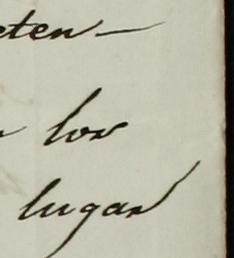 eten—
los
lugar